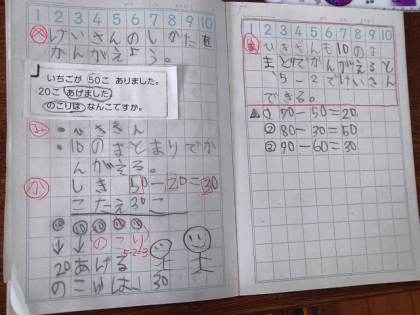 1 2 3 4 5 6 7 8 9 10
め けいさんのしかたを
かんがえよう。
いちごが 50こ ありました。
20こ あげました
のこりは なんこですか。
・ひきざん
・10のまとまりでか
んがえる。
しき 50−20=30
こたえ30こ
⑩ ⑩ ⑩ ⑩ ⑩
↓ ↓ のこり
5-2=3
20あげる
のこりは 30
1 2 3 4 5 6 7 8 9 10
ま ひきざんも10のま
でかんがえると
5-2でけいさん
できる。
① 70-50=20
② 80-30=50
③ 90-60=30